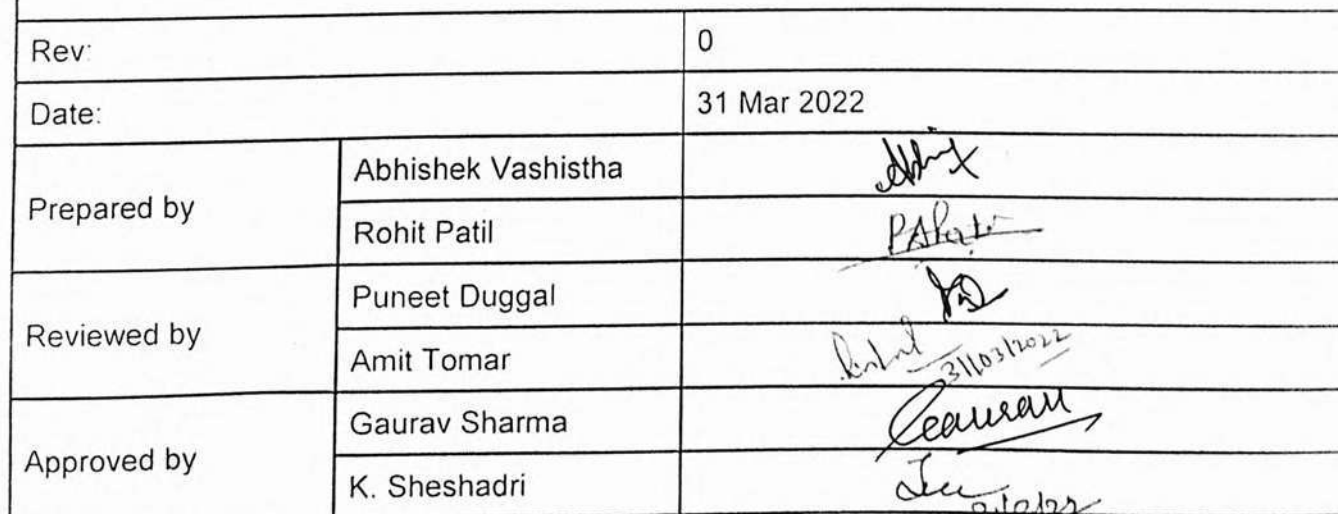 Rev: 0
Date: 31 Mar 2022
Prepared by
Abhishek Vashistha
Rohit Patil
Reviewed by
Puneet Duggal
Amit Tomar
31/03/2022
Approved by
Gaurav Sharma
Gaurav
K. Sheshadri